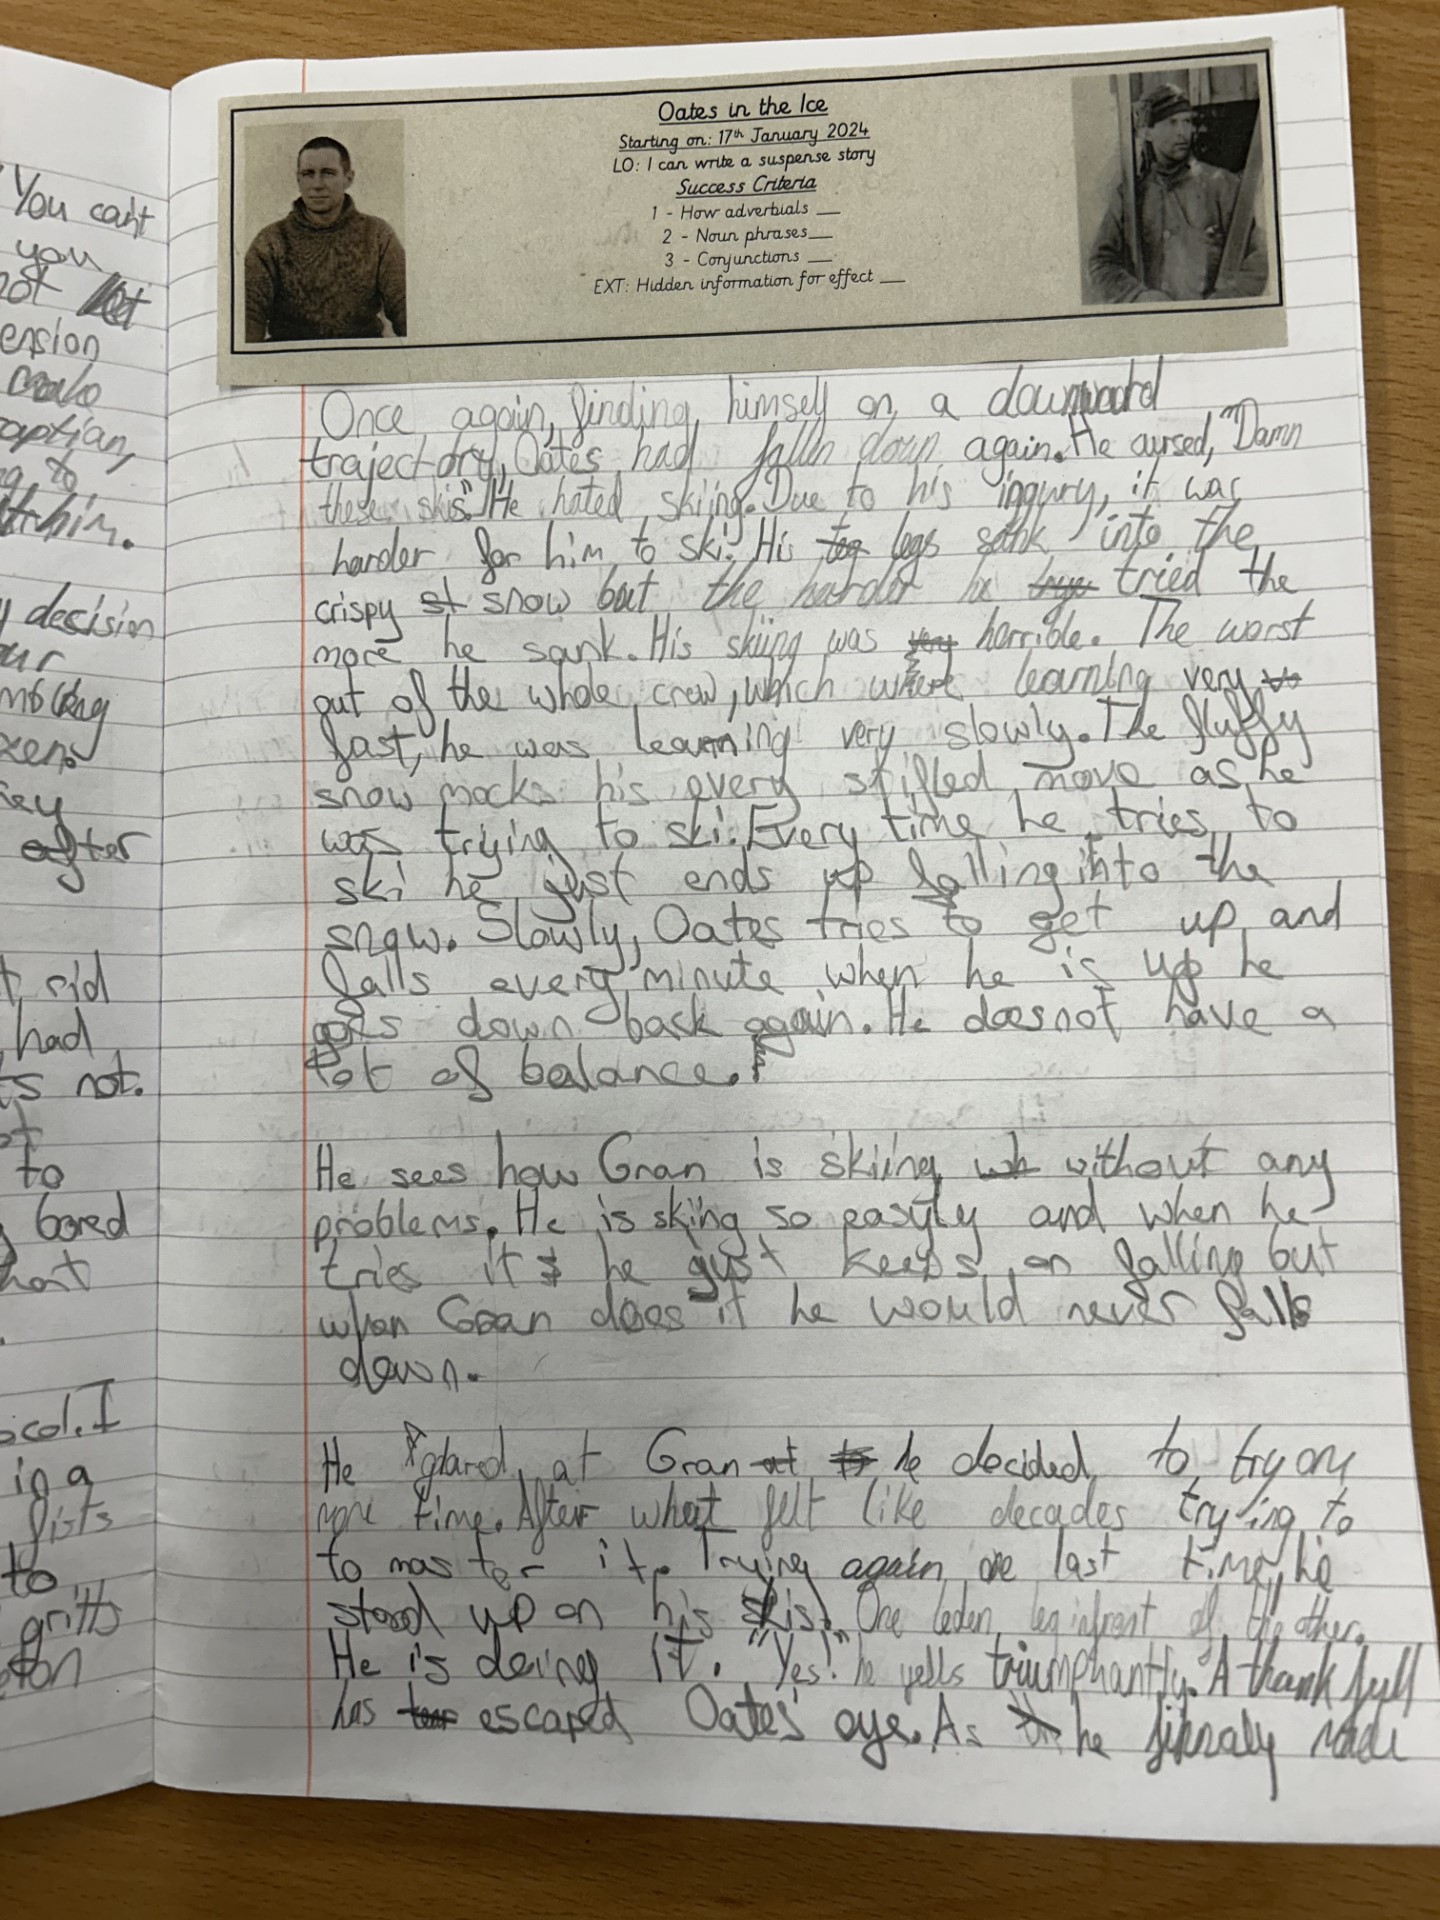 You can't
you
not
ension
make
captian,
g, to
him.
decision
our
mocking
xen.
ey
after
t, rid
had
ts not.
to
bored
hat
ocol. I
in a
fists
to
gritts
ton
Oates in the Ice
Starting on: 17th January 2024
LO: I can write a suspense story
Success Criteria
1 - How adverbials __
2 - Noun phrases __
3 - Conjunctions __
EXT: Hidden information for effect __
Once again, finding himself on a downward
trajectory, Oates had falln down again. He cursed, "Damn
these skis". He hated skiing. Due to his ingury, it was
harder for him to ski. His leg legs sank into the
crispy st snow but the harder he trye tried the
more he sank. His skiing was very horrible. The worst
out of the whole crew, which were learning very
fast, he was learning very slowly. The fluffy
snow mocks his every stifled move as he
was trying to ski. Every time he tries to
ski he just ends up falling into the
snow. Slowly, Oates tries to get up and
falls every minute when he is up he
goes down back again. He does not have a
lot of balance.
He sees how Gran is skiing wh without any
problems. He is skiing so easyly and when he
tries it he gust keeps on falling but
when Gran does it he would never falls
down.
He glared at Gran at to he decided to try one
more time. After what felt like decades trying to
to master it. Trying again one last time, he
stood up on his skis. One leden leg infront of the other.
He is doing it. "Yes!" he yells triumphantly. A thankfull
has tear escaped Oates' eye. As he finnaly made